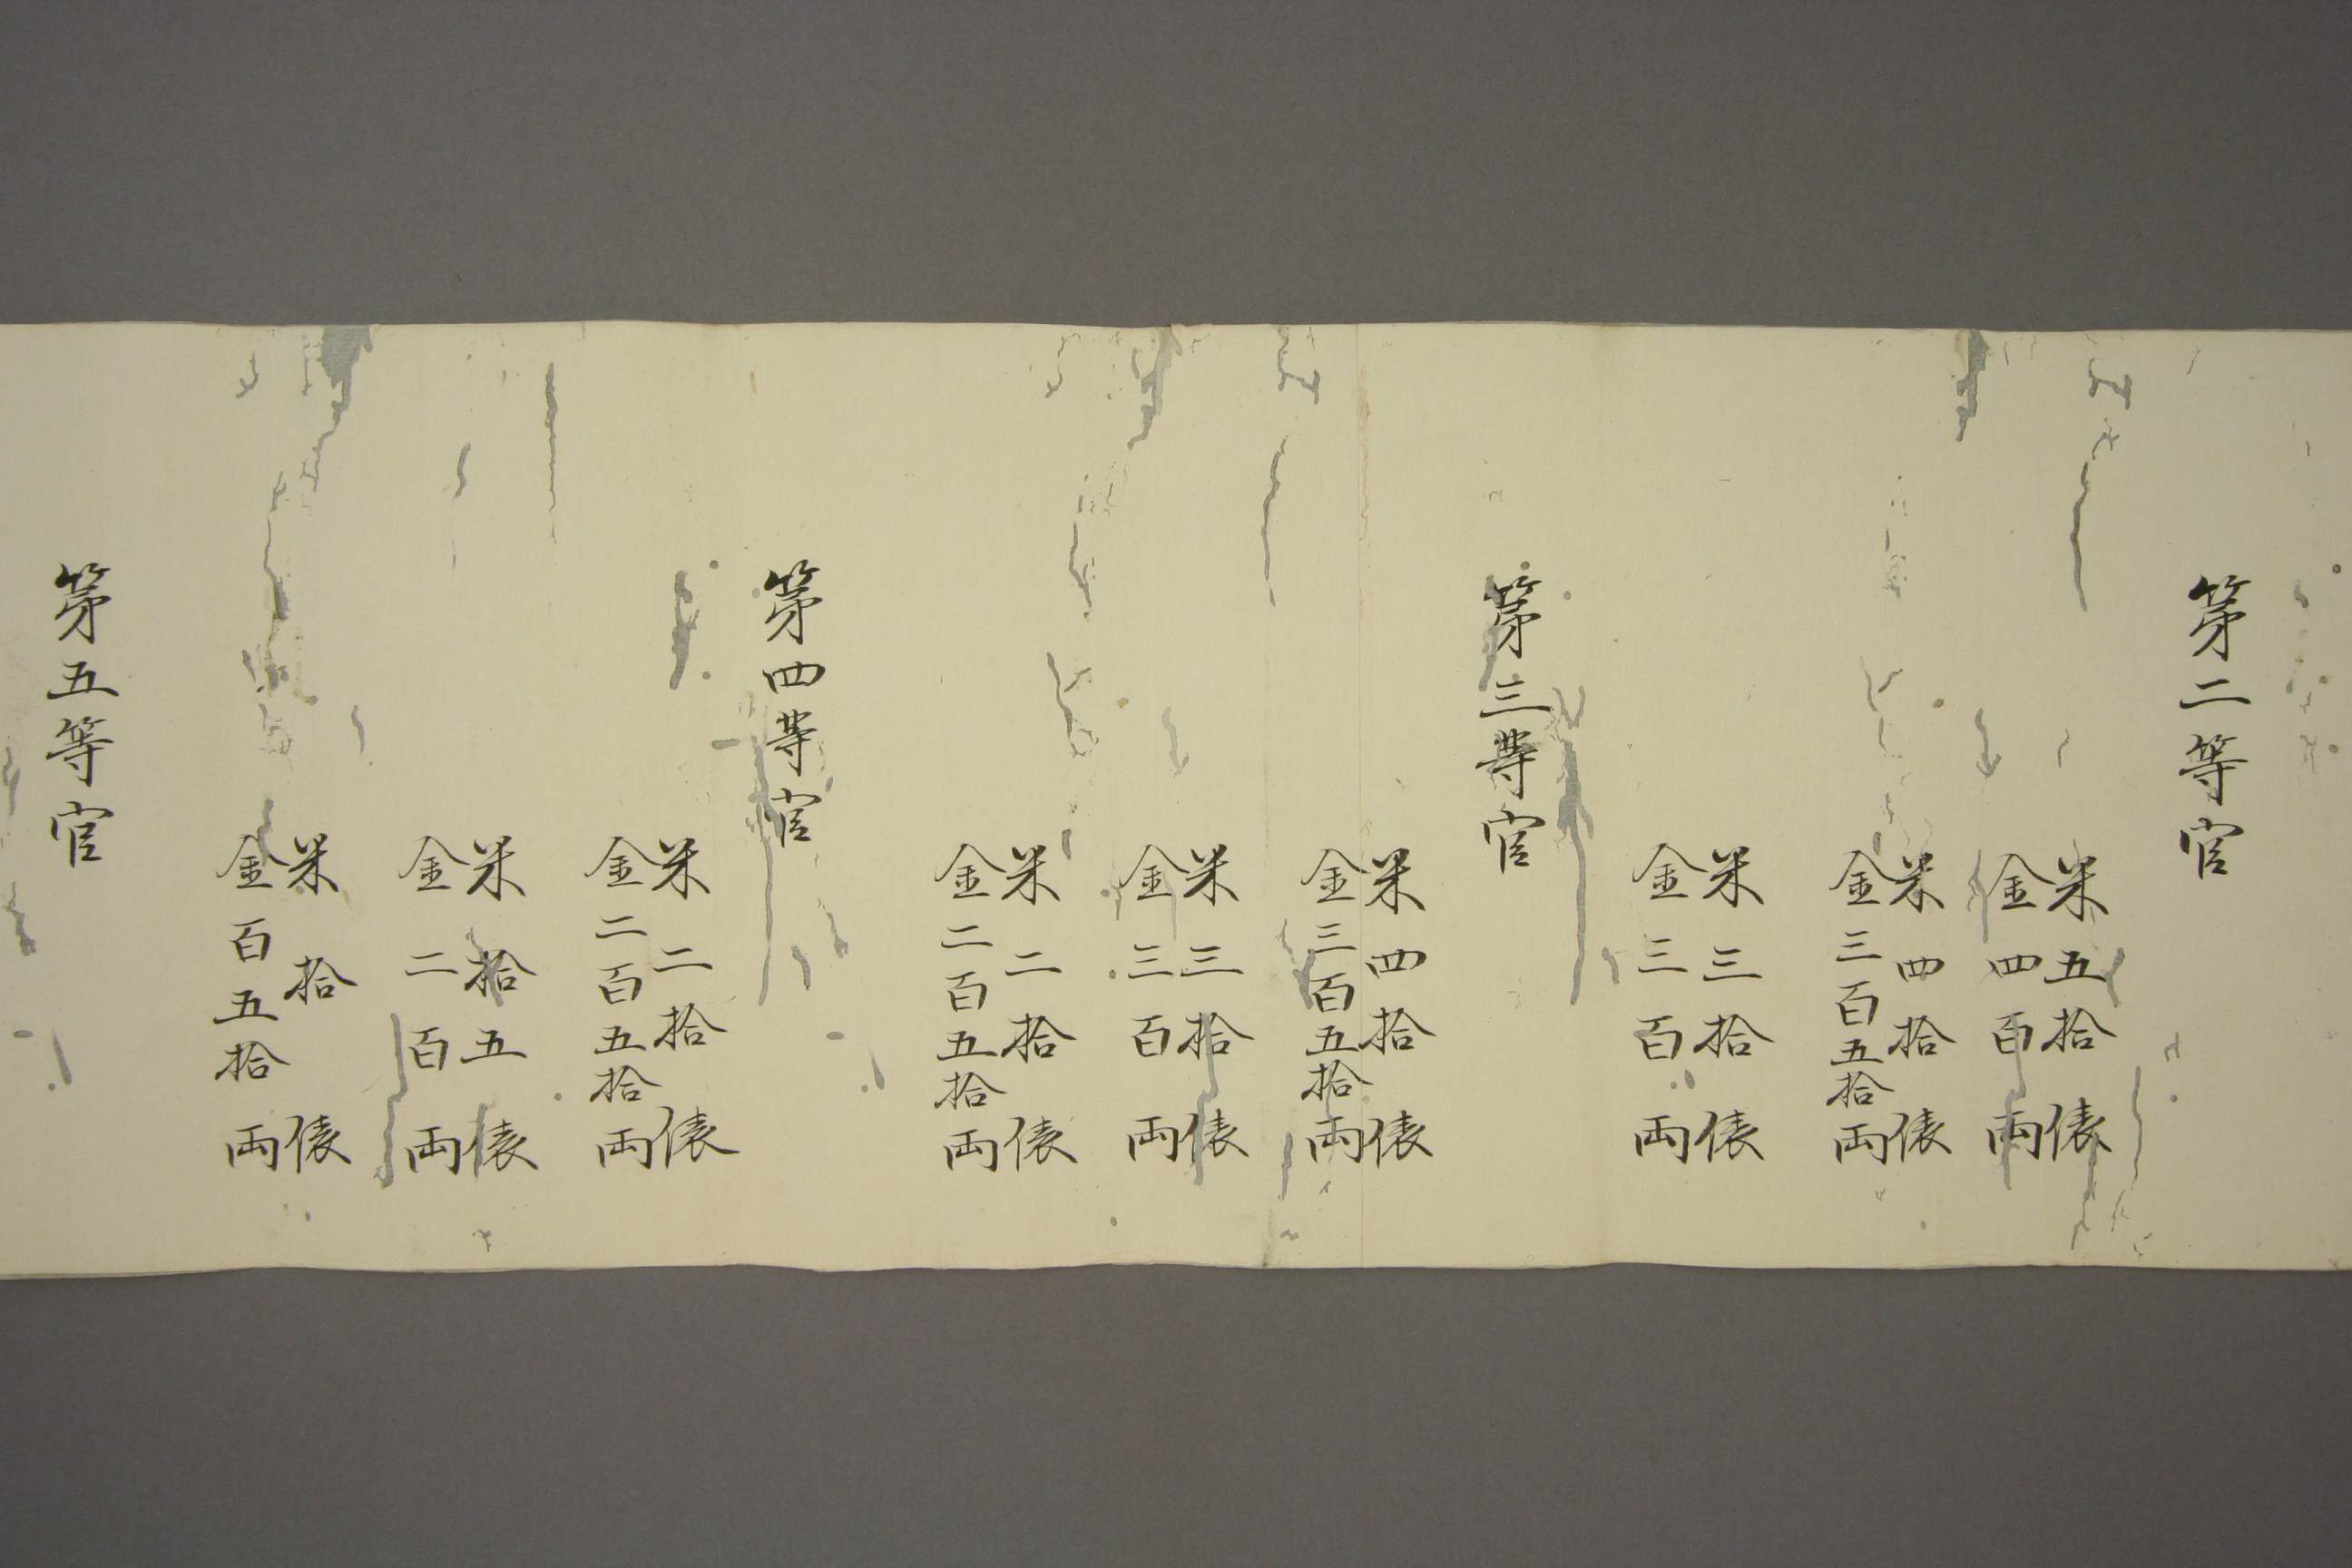 第二等官
米五拾俵
金四百両
米四拾俵
金三百五拾両
米三拾俵
金三百両
第三等官
米四拾俵
金三百五拾両
米三拾俵
金三百両
米二拾俵
金二百五拾両
第四等官
米二拾俵
金二百五拾両
米拾五俵
金二百両
米拾俵
金百五拾両
第五等官